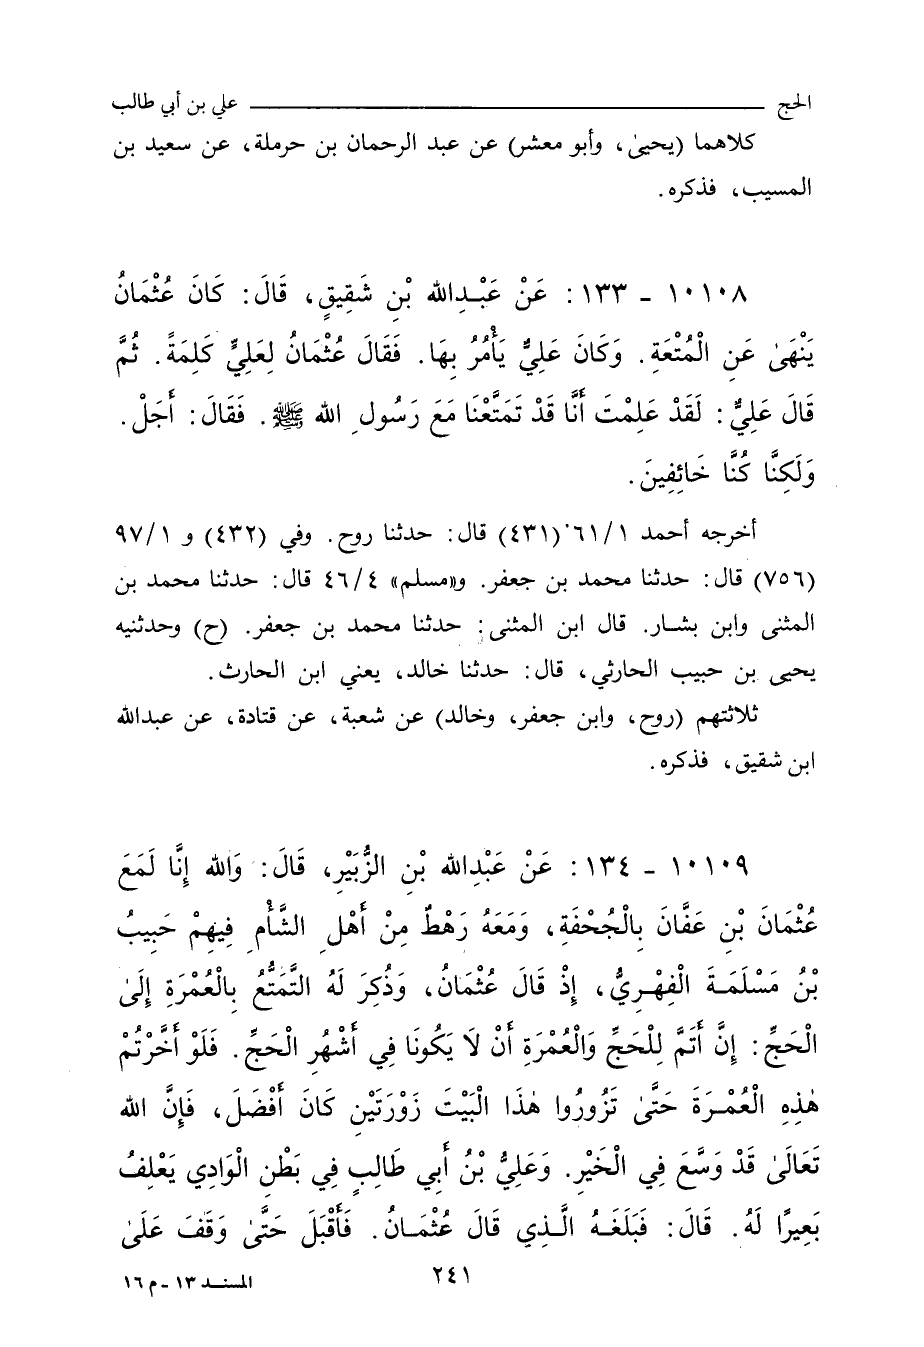 الحج ــــــــــــــــــــــ علي بن أبي طالب
كلاهما (يحيىٰ، وأبو معشر) عن عبد الرحمان بن حرملة، عن سعيد بن
المسيب، فذكره.
١٠١٠٨ - ١٣٣ : عَنْ عَبْدِاللهِ بْنِ شَقِيقٍ، قَالَ: كَانَ عُثْمَانُ
يَنْهَىٰ عَنِ الْمُتْعَةِ. وَكَانَ عَلِيٌّ يَأْمُرُ بِهَا. فَقَالَ عُثْمَانُ لِعَلِيٍّ كَلِمَةً. ثُمَّ
قَالَ عَلِيٌّ: لَقَدْ عَلِمْتَ أَنَّا قَدْ تَمَتَّعْنَا مَعَ رَسُولِ اللهِ ﷺ. فَقَالَ: أَجَلْ.
وَلَكِنَّا كُنَّا خَائِفِينَ.
أخرجه أحمد ٦١/١ (٤٣١) قال: حدثنا روح. وفي (٤٣٢) و ٩٧/١
(٧٥٦) قال: حدثنا محمد بن جعفر. و«مسلم» ٤٦/٤ قال: حدثنا محمد بن
المثنى وابن بشار. قال ابن المثنى: حدثنا محمد بن جعفر. (ح) وحدثنيه
يحيى بن حبيب الحارثي، قال: حدثنا خالد، يعني ابن الحارث.
ثلاثتهم (روح، وابن جعفر، وخالد) عن شعبة، عن قتادة، عن عبدالله
ابن شقيق، فذكره.
١٠١٠٩ - ١٣٤ : عَنْ عَبْدِاللهِ بْنِ الزُّبَيْرِ، قَالَ: وَاللهِ إِنَّا لَمَعَ
عُثْمَانَ بْنِ عَفَّانَ بِالْجُحْفَةِ، وَمَعَهُ رَهْطٌ مِنْ أَهْلِ الشَّأْمِ فِيهِمْ حَبِيبُ
بْنُ مَسْلَمَةَ الْفِهْرِيُّ، إِذْ قَالَ عُثْمَانُ، وَذُكِرَ لَهُ التَّمَتُّعُ بِالْعُمْرَةِ إِلَىٰ
الْحَجِّ: إِنَّ أَتَمَّ لِلْحَجِّ وَالْعُمْرَةِ أَنْ لَا يَكُونَا فِي أَشْهُرِ الْحَجِّ. فَلَوْ أَخَّرْتُمْ
هٰذِهِ الْعُمْرَةَ حَتَّىٰ تَزُورُوا هٰذَا الْبَيْتَ زَوْرَتَيْنِ كَانَ أَفْضَلَ، فَإِنَّ اللهَ
تَعَالَىٰ قَدْ وَسَّعَ فِي الْخَيْرِ. وَعَلِيُّ بْنُ أَبِي طَالِبٍ فِي بَطْنِ الْوَادِي يَعْلِفُ
بَعِيرًا لَهُ. قَالَ: فَبَلَغَهُ الَّذِي قَالَ عُثْمَانُ. فَأَقْبَلَ حَتَّىٰ وَقَفَ عَلَىٰ
٢٤١
المسند ١٣ - م ١٦